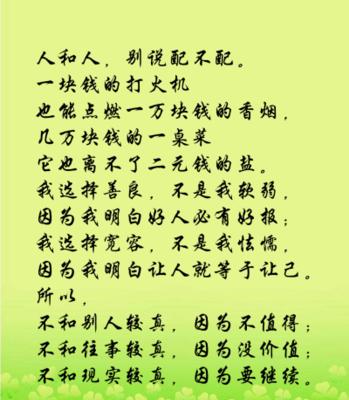 人和人，别说配不配。
一块钱的打火机
也能点燃一万块钱的香烟，
几万块钱的一桌菜
它也离不了二元钱的盐。
我选择善良，不是我软弱，
因为我明白好人必有好报；
我选择宽容，不是我怯懦，
因为我明白让人就等于让己。
所以，
不和别人较真，因为不值得；
不和往事较真，因为没价值；
不和现实较真，因为要继续。